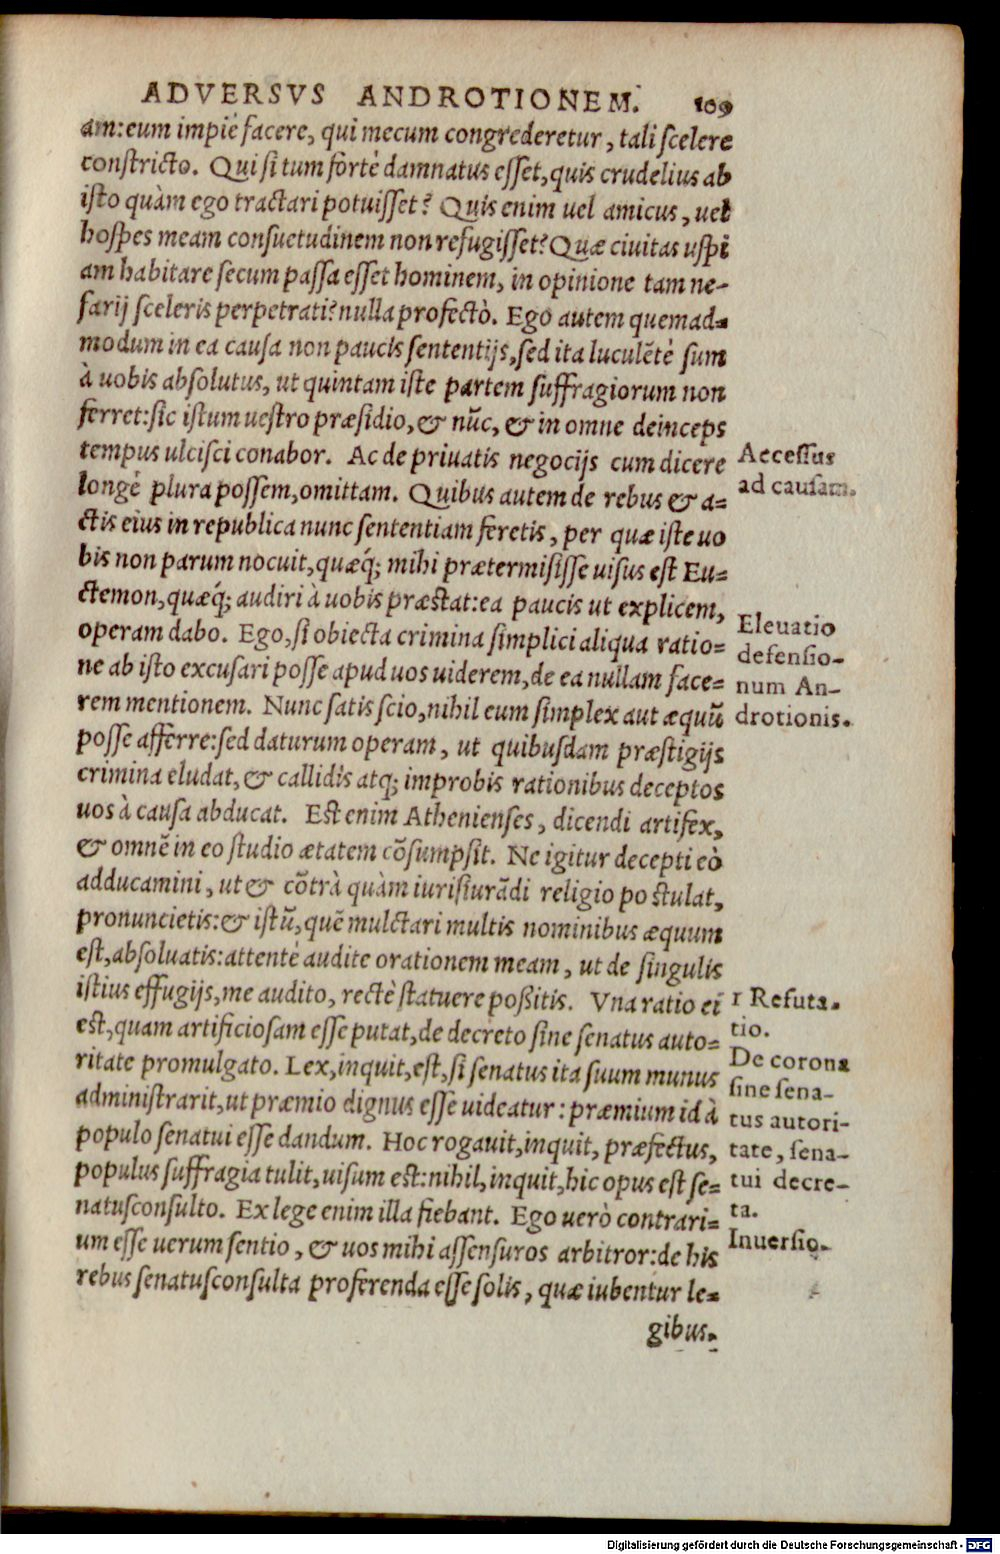 ADVERSVS ANDROTIONEM. 109
am: eum impiè facere, qui mecum congrederetur, tali scelere
constricto. Qui si tum fortè damnatus esset, quis crudelius ab
isto quàm ego tractari potuisset? Quis enim uel amicus, uel
hospes meam consuetudinem non refugisset? Quæ ciuitas uspi
am habitare secum passa esset hominem, in opinione tam ne-
farij sceleris perpetrati? nulla profectò. Ego autem quemad-
modum in ea causa non paucis sententijs, sed ita luculẽtè sum
à uobis absolutus, ut quintam iste partem suffragiorum non
ferret: sic istum uestro præsidio, & nũc, & in omne deinceps
tempus ulcisci conabor. Ac de priuatis negocijs cum dicere
longè plura possem, omittam. Quibus autem de rebus & a-
ctis eius in republica nunc sententiam feretis, per quæ iste uo
bis non parum nocuit, quæq́; mihi prætermisisse uisus est Eu-
ctemon, quæq́; audiri à uobis præstat: ea paucis ut explicem,
operam dabo. Ego, si obiecta crimina simplici aliqua ratio-
ne ab isto excusari posse apud uos uiderem, de ea nullam face-
rem mentionem. Nunc satis scio, nihil eum simplex aut æquũ
posse afferre: sed daturum operam, ut quibusdam præstigijs
crimina eludat, & callidis atq; improbis rationibus deceptos
uos à causa abducat. Est enim Athenienses, dicendi artifex,
& omnẽ in eo studio ætatem cõsumpsit. Ne igitur decepti eò
adducamini, ut & cõtrà quàm iurisiurãdi religio postulat,
pronuncietis: & istũ, quẽ mulctari multis nominibus æquum
est, absoluatis: attentè audite orationem meam, ut de singulis
istius effugijs, me audito, rectè statuere poßitis. Vna ratio ei
est, quam artificiosam esse putat, de decreto sine senatus auto-
ritate promulgato. Lex, inquit, est, si senatus ita suum munus
administrarit, ut præmio dignus esse uideatur: præmium id à
populo senatui esse dandum. Hoc rogauit, inquit, præfectus,
populus suffragia tulit, uisum est: nihil, inquit, hic opus est se-
natusconsulto. Ex lege enim illa fiebant. Ego uerò contrari-
um esse uerum sentio, & uos mihi assensuros arbitror: de his
rebus senatusconsulta proferenda esse solis, quæ iubentur le-
gibus.
Accessus
ad causam.
Eleuatio
defensio-
num An-
drotionis.
1 Refuta-
tio.
De corona
sine sena-
tus autori-
tate, sena-
tui decre-
ta.
Inuersio.
Digitalisierung gefördert durch die Deutsche Forschungsgemeinschaft - DFG